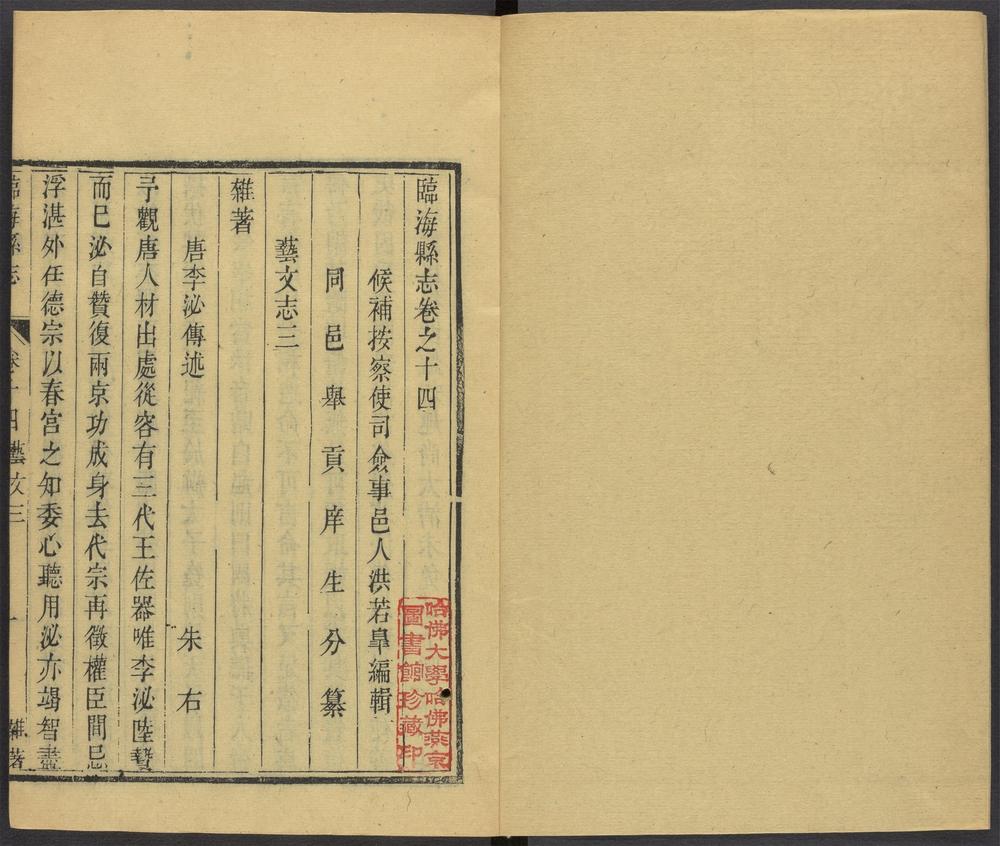 臨海縣志卷之十四
候補按察使司僉事邑人洪若臯編輯
同邑舉貢庠生分纂
藝文志三
雜著
唐李泌傳述 朱右
予觀唐人材出處從容有三代王佐器唯李泌陸贄
而已泌自贊復兩京功成身去代宗再徵權臣間忌
浮湛外任德宗以春宮之知委心聽用泌亦竭智盡
臨海縣志 卷十四藝文三 一 雜著
哈佛大學哈佛燕京
圖書館珍藏印